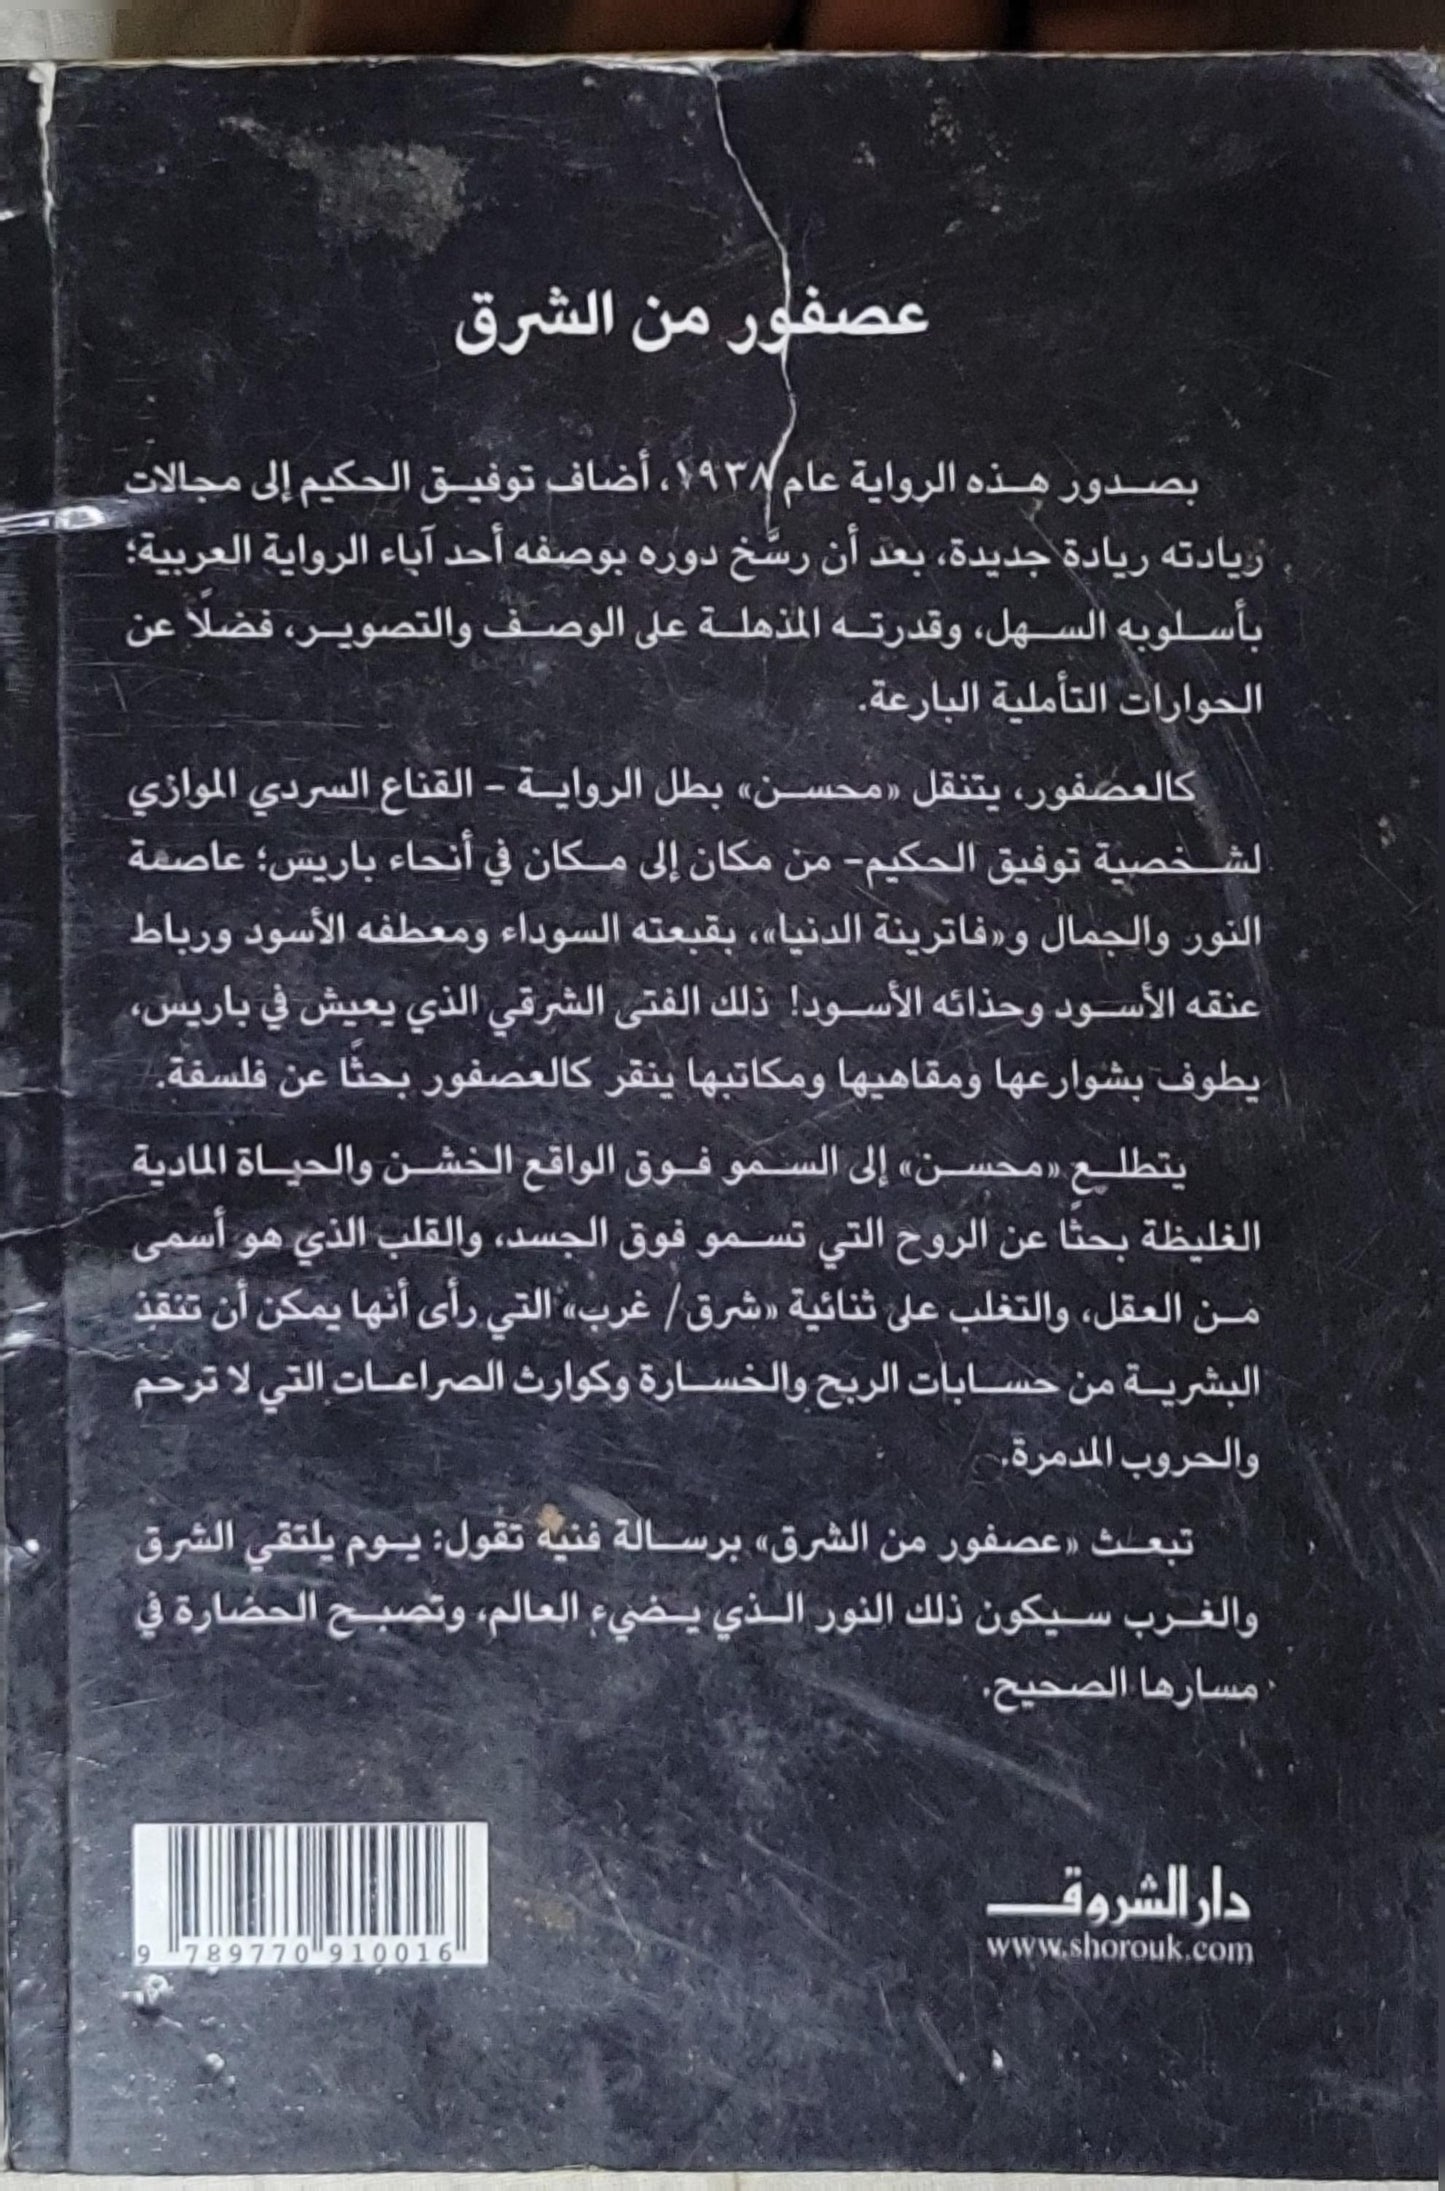 عصفور من الشرق
بصدور هذه الرواية عام ١٩٣٨، أضاف توفيق الحكيم إلى مجالات
ريادته ريادة جديدة، بعد أن رسَّخ دوره بوصفه أحد آباء الرواية العربية؛
بأسلوبه السهل، وقدرته المذهلة على الوصف والتصوير، فضلًا عن
الحوارات التأملية البارعة.
كالعصفور، يتنقل «محسن» بطل الرواية – القناع السردي الموازي
لشخصية توفيق الحكيم– من مكان إلى مكان في أنحاء باريس؛ عاصمة
النور والجمال و«فاترينة الدنيا»، بقبعته السوداء ومعطفه الأسود ورباط
عنقه الأسود وحذائه الأسود! ذلك الفتى الشرقي الذي يعيش في باريس،
يطوف بشوارعها ومقاهيها ومكاتبها ينقر كالعصفور بحثًا عن فلسفة.
يتطلع «محسن» إلى السمو فوق الواقع الخشن والحياة المادية
الغليظة بحثًا عن الروح التي تسمو فوق الجسد، والقلب الذي هو أسمى
من العقل، والتغلب على ثنائية «شرق/ غرب» التي رأى أنها يمكن أن تنقذ
البشرية من حسابات الربح والخسارة وكوارث الصراعات التي لا ترحم
والحروب المدمرة.
تبعث «عصفور من الشرق» برسالة فنية تقول: يوم يلتقي الشرق
والغرب سيكون ذلك النور الذي يضيء العالم، وتصبح الحضارة في
مسارها الصحيح.
دار الشروق
www.shorouk.com
9 789770 910016